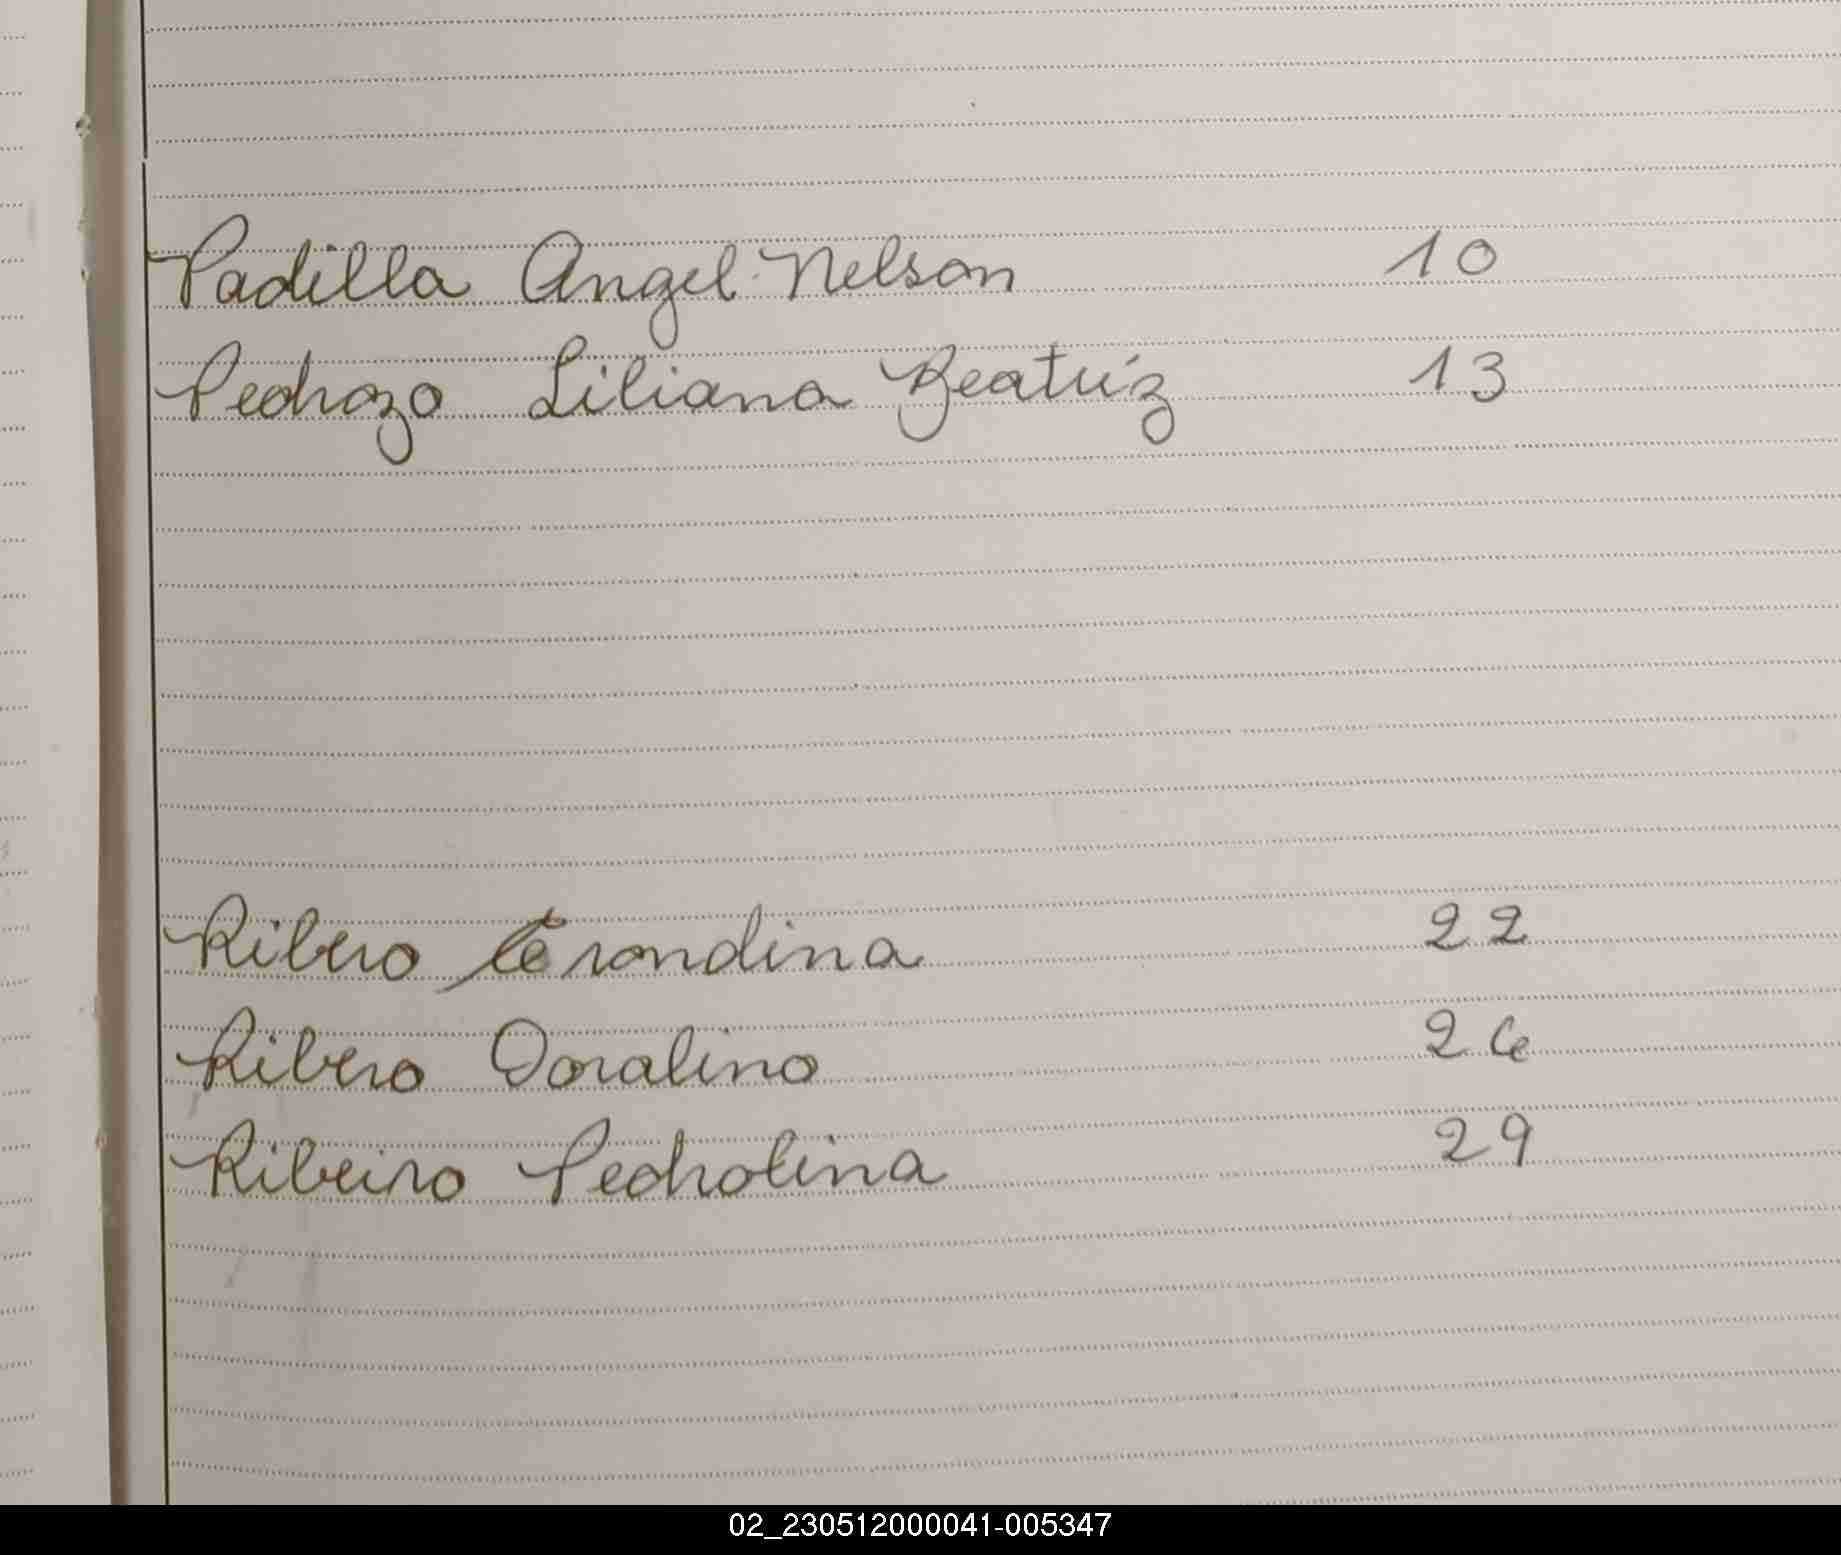 Padilla Angel Nelson 10
Pedrozo Liliana Beatríz 13
Ribero 22
Ribero Doralino 26
Ribeiro Pedrolina 29
02_230512000041-005347